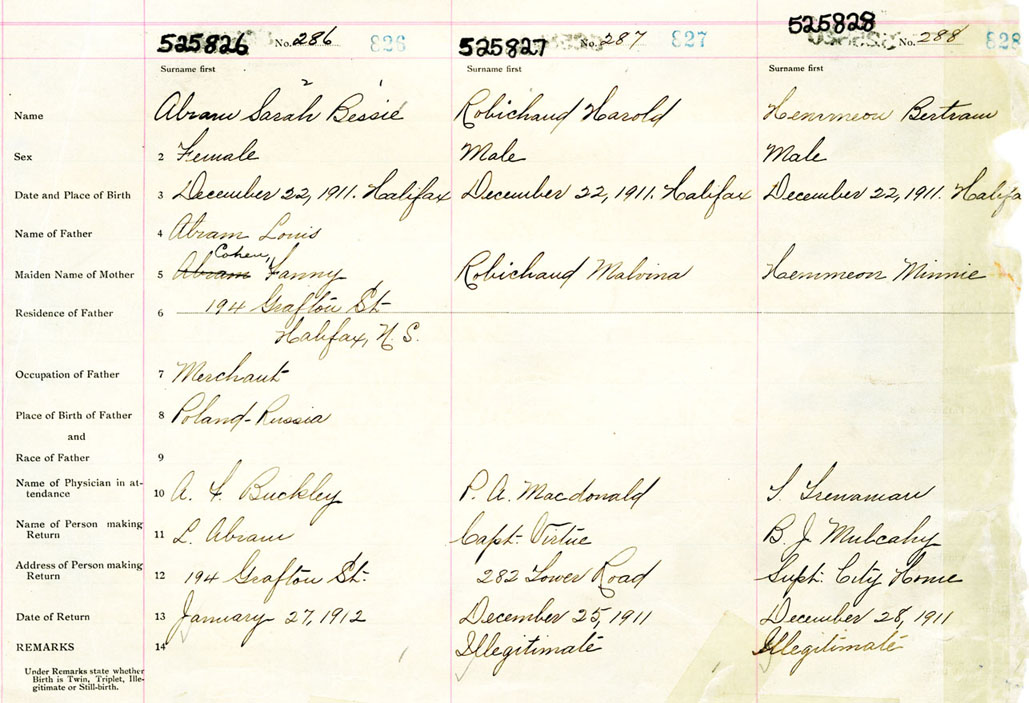 525826 No. 286 826 525827 No. 287 827 525828 No. 288 828
Surname first Surname first Surname first
2
Name Abram Sarah Bessie Robichaud Harold Hemmeon Bertram
Sex 2 Female Male Male
Date and Place of Birth 3 December 22, 1911. Halifax December 22, 1911. Halifax December 22, 1911. Halifa
Name of Father 4 Abram Louis
Cohen,
Maiden Name of Mother 5 Abram Fanny Robichaud Malvina Hemmeon Minnie
194 Grafton St.
Residence of Father 6
Halifax, N. S.
Occupation of Father 7 Merchant
Place of Birth of Father 8 Poland-Russia
and
Race of Father 9
Name of Physician in at-
tendance 10 A. F. Buckley P. A. Macdonald S. Trenaman
Name of Person making
Return 11 L. Abram Capt. Virtue B. J. Mulcahy
Address of Person making
Return 12 194 Grafton St. 282 Lower Road Supt. City Home
Date of Return 13 January 27, 1912 December 25, 1911 December 28, 1911
REMARKS 14 Illegitimate Illegitimate
Under Remarks state whether
Birth is Twin, Triplet, Ille-
gitimate or Still-birth.